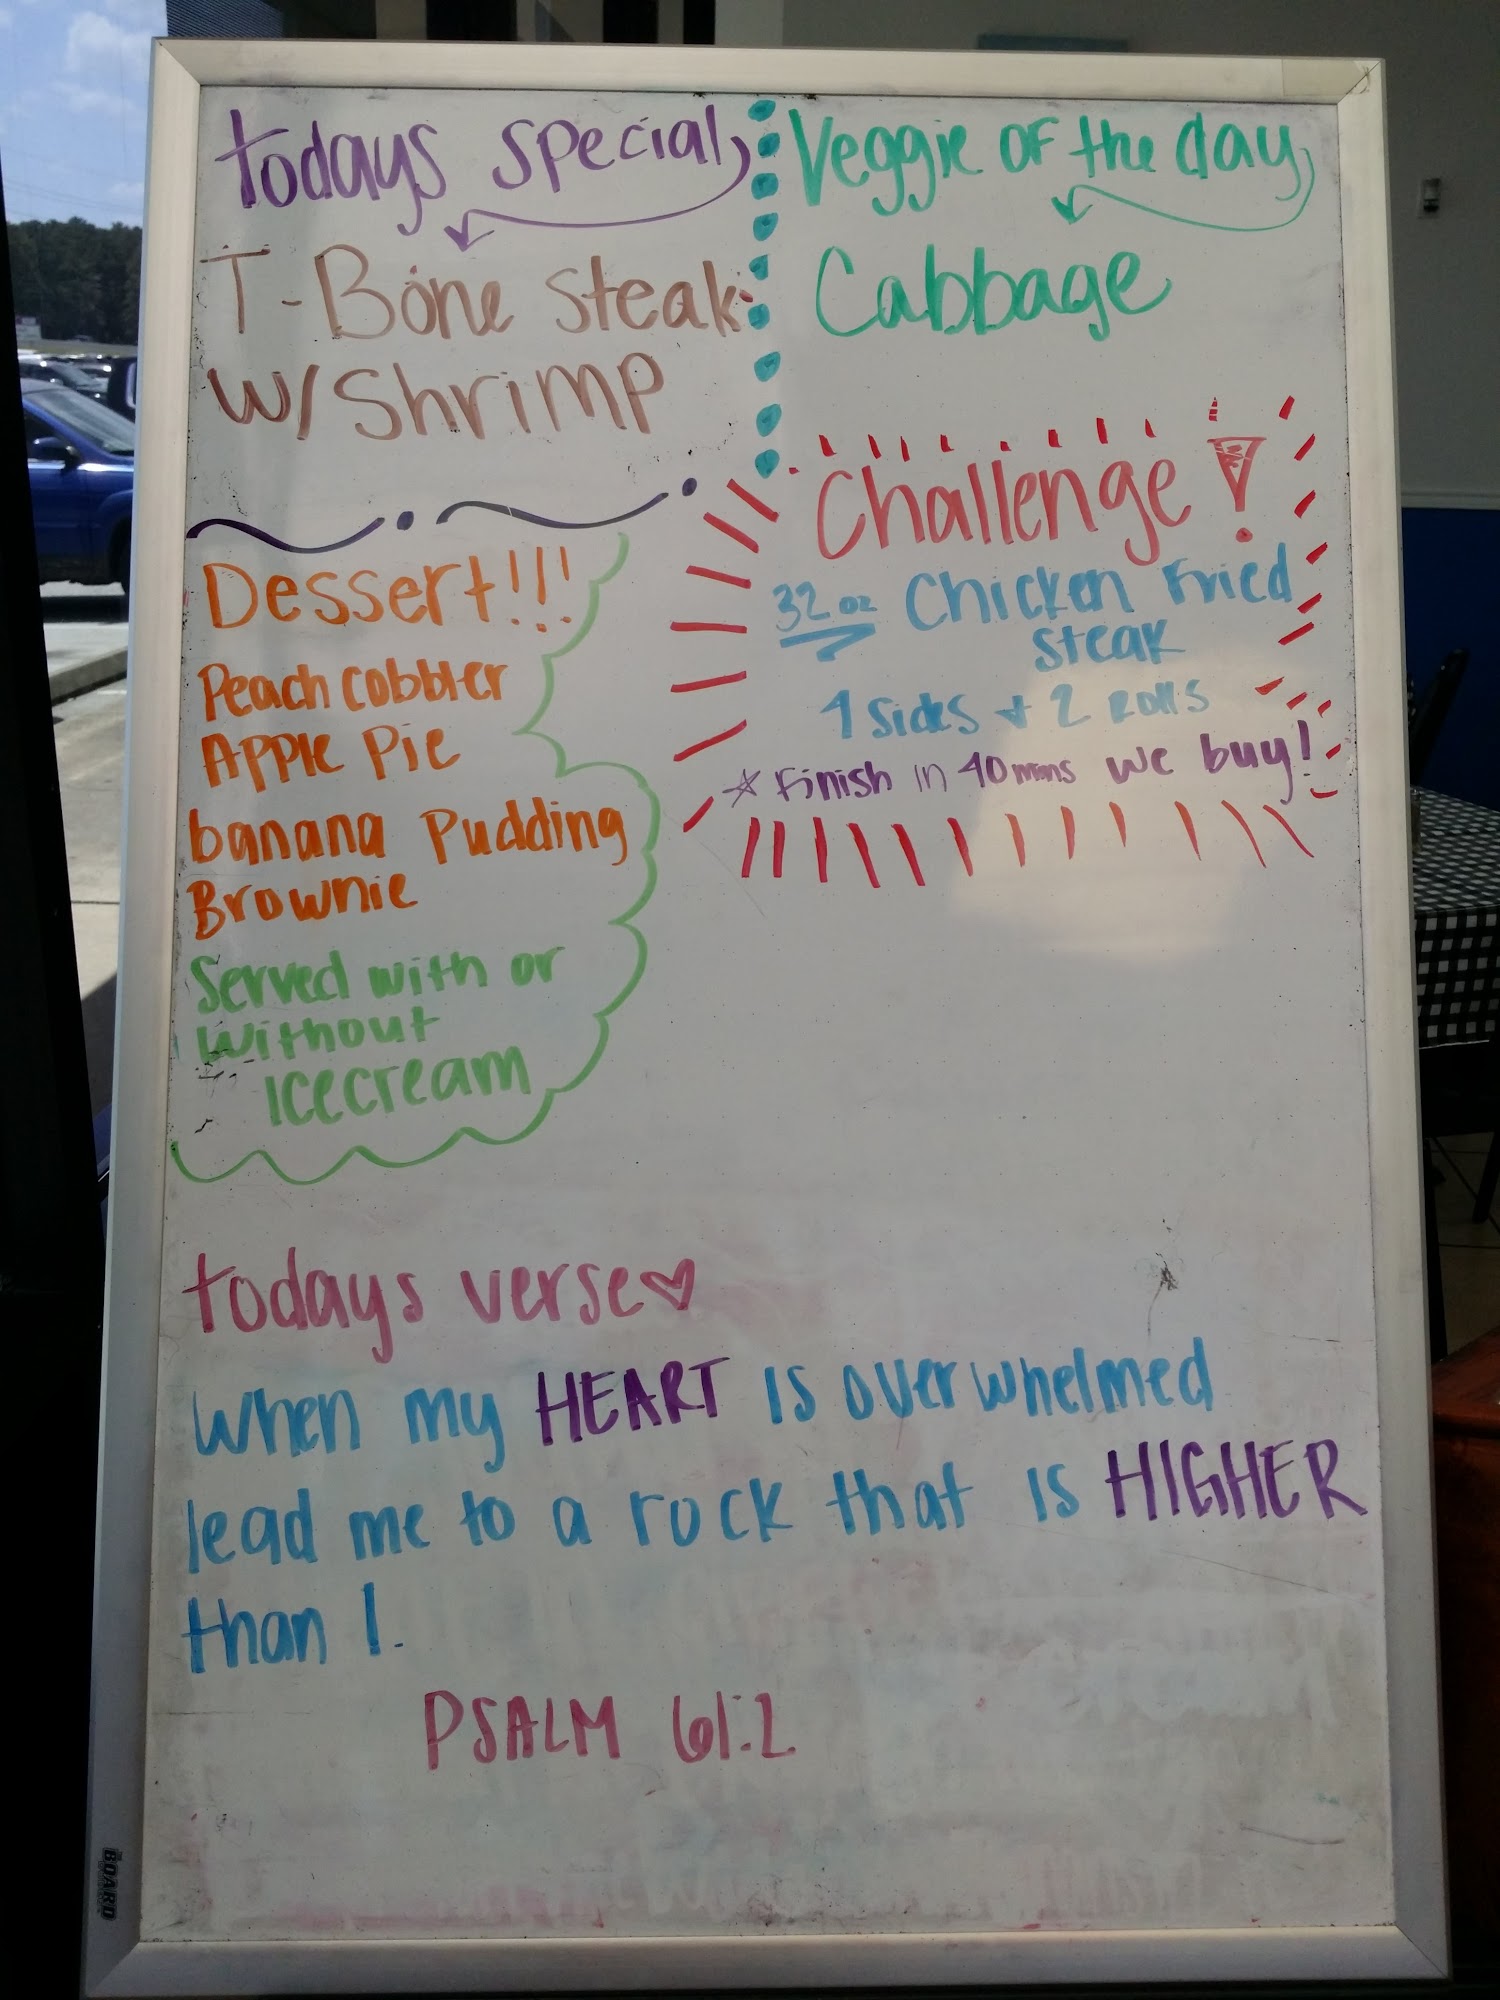 todays special
T-Bone Steak
w/Shrimp
Veggie of the day
Cabbage
Challenge!
32 oz Chicken Fried
Steak
4 Sides + 2 Rolls
* Finish in 40 mins we buy!
Dessert!!!
Peach cobbler
Apple Pie
banana Pudding
Brownie
Served with or
without
Icecream
todays verse
When my HEART is overwhelmed
lead me to a rock that is HIGHER
than I.
PSALM 61:2
BOARD